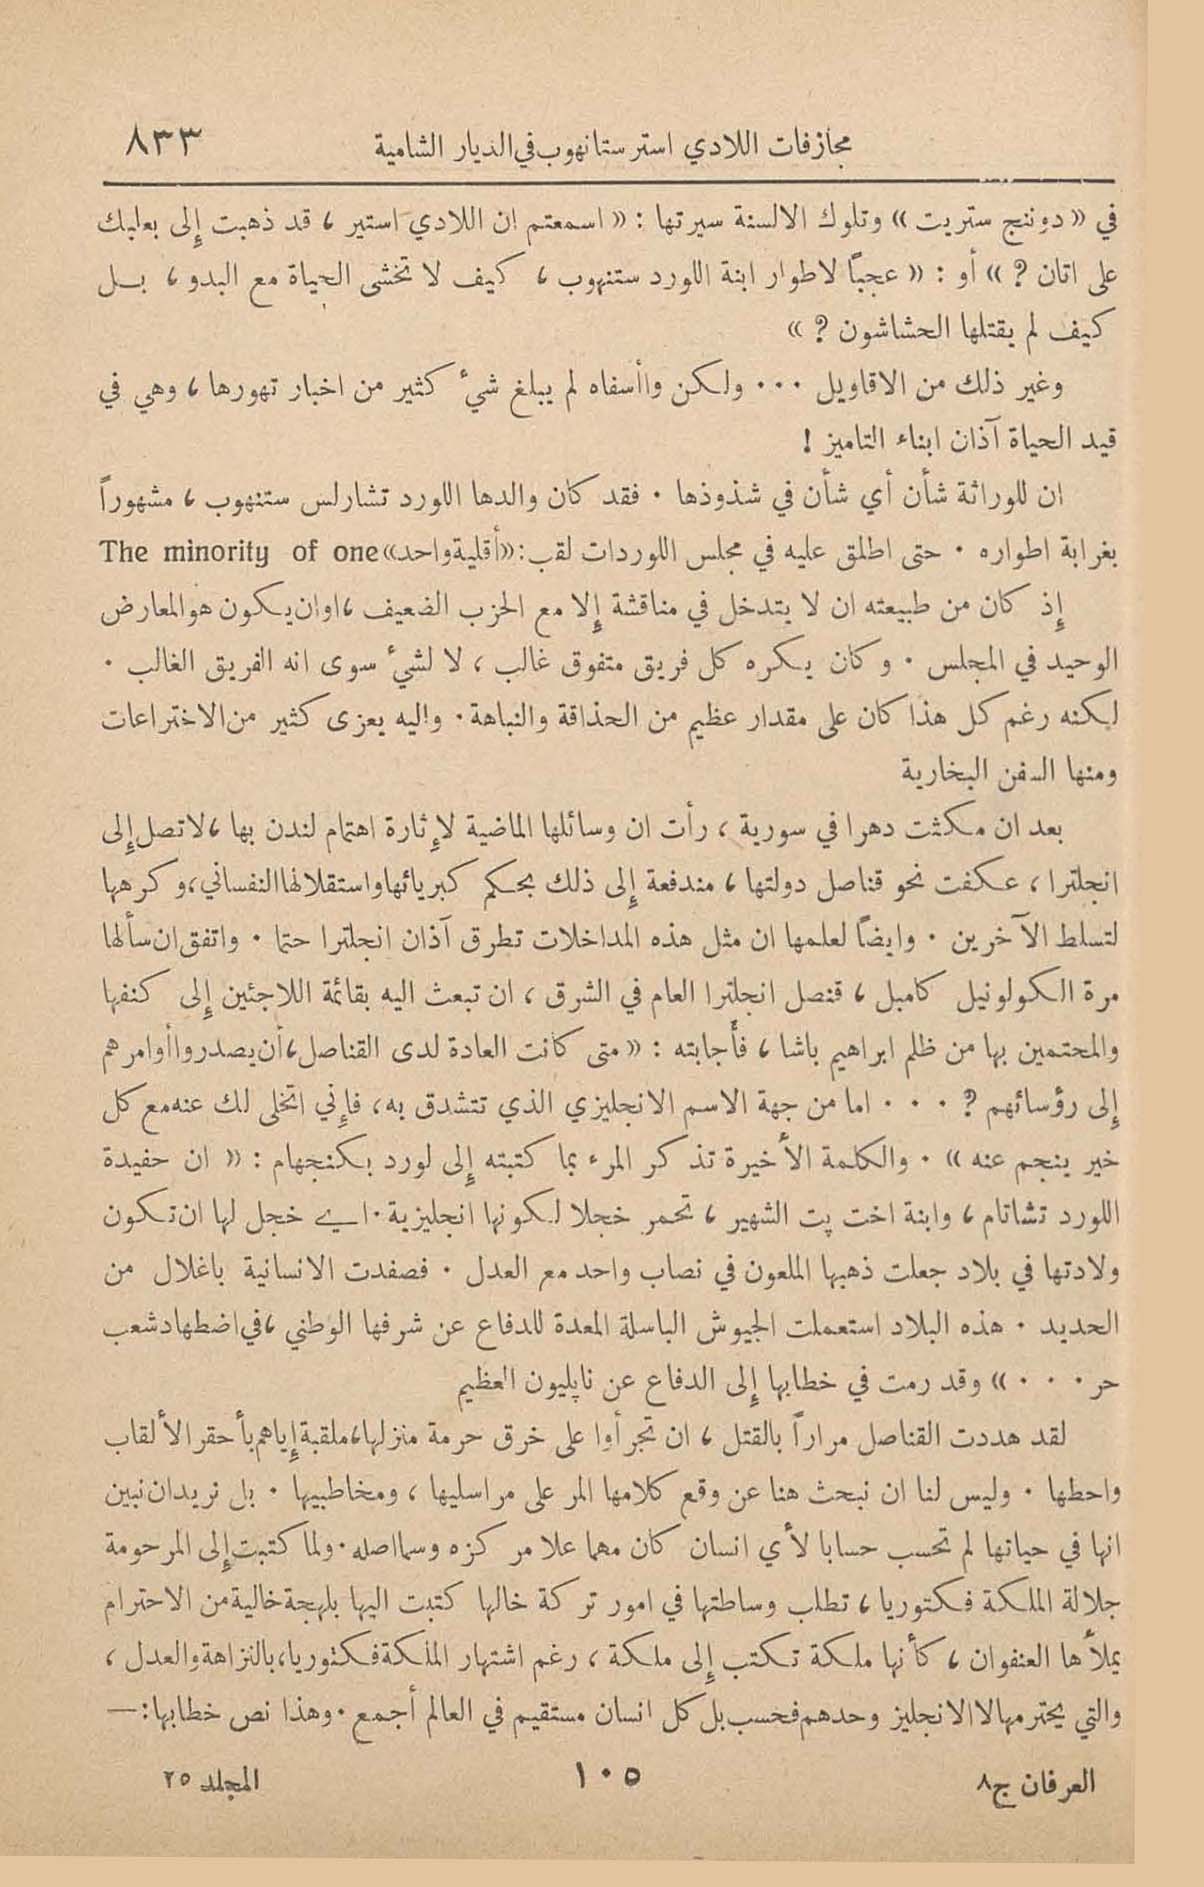 مجازفات اللادي استر ستانهوب في الديار الشامية ٨٣٣
في «دوننج ستريت» وتلوك الالسنة سيرتها : « اسمعتم ان اللادي استير ، قد ذهبت إلى بعلبك
على اتان ? » أو : « عجباً لاطوار ابنة اللورد ستنهوب ، كيف لا تخشى الحياة مع البدو ، بـل
كيف لم يقتلها الحشاشون ? »
وغير ذلك من الاقاويل ... ولكن واأسفاه لم يبلغ شيء كثير من اخبار تهورها ، وهي في
قيد الحياة آذان ابناء التاميز !
ان للوراثة شأن أي شأن في شذوذها . فقد كان والدها اللورد تشارلس ستنهوب ، مشهوراً
بغرابة اطواره . حتى اطلق عليه في مجلس اللوردات لقب : «أقلية واحد» The minority of one
إذ كان من طبيعته ان لا يتدخل في مناقشة إلا مع الحزب الضعيف ، او ان يكون هو المعارض
الوحيد في المجلس . وكان يكره كل فريق متفوق غالب ، لا لشيء سوى انه الفريق الغالب .
لكنه رغم كل هذا كان على مقدار عظيم من الحذاقة والنباهة . واليه يعزى كثير من الاختراعات
ومنها السفن البخارية
بعد ان مكثت دهرا في سورية ، رأت ان وسائلها الماضية لإثارة اهتمام لندن بها ، لا تصل إلى
انجلترا ، عكفت نحو قناصل دولتها ، مندفعة إلى ذلك بحكم كبريائها واستقلالها النفساني ، وكرهها
لتسلط الآخرين . وايضاً لعلمها ان مثل هذه المداخلات تطرق آذان انجلترا حتما . واتفق ان سألها
مرة الكولونيل كامبل ، قنصل انجلترا العام في الشرق ، ان تبعث اليه بقائمة اللاجئين إلى كنفها
والمحتمين بها من ظلم ابراهيم باشا ، فأجابته : « متى كانت العادة لدى القناصل ، أن يصدروا أوامرهم
إلى رؤسائهم ? . . . اما من جهة الاسم الانجليزي الذي تتشدق به ، فإني اتخلى لك عنه مع كل
خير ينجم عنه » . والكلمة الأخيرة تذكر المرء بما كتبته إلى لورد بكنجهام : « ان حفيدة
اللورد تشاتام ، وابنة اخت پت الشهير ، تحمر خجلا لكونها انجليزية . اي خجل لها ان تكون
ولادتها في بلاد جعلت ذهبها الملعون في نصاب واحد مع العدل . فصفدت الانسانية باغلال من
الحديد . هذه البلاد استعملت الجيوش الباسلة المعدة للدفاع عن شرفها الوطني ، في اضطهاد شعب
حر . . . » وقد رمت في خطابها إلى الدفاع عن ناپليون العظيم
لقد هددت القناصل مراراً بالقتل ، ان تجرأوا على خرق حرمة منزلها ، ملقبة إياهم بأحقر الألقاب
واحطها . وليس لنا ان نبحث هنا عن وقع كلامها المر على مراسليها ، ومخاطبيها . بل نريد ان نبين
انها في حياتها لم تحسب حسابا لأي انسان كان مهما علا مركزه وسما اصله . ولما كتبت إلى المرحومة
جلالة الملكة فكتوريا ، تطلب وساطتها في امور تركة خالها كتبت اليها بلهجة خالية من الاحترام
يملأها العنفوان ، كأنها ملكة تكتب إلى ملكة ، رغم اشتهار الملكة فكتوريا ، بالنزاهة والعدل ،
والتي يحترمها لا الانجليز وحدهم فحسب بل كل انسان مستقيم في العالم أجمع . وهذا نص خطابها : —
العرفان ج٨ ١٠٥ المجلد ٢٥